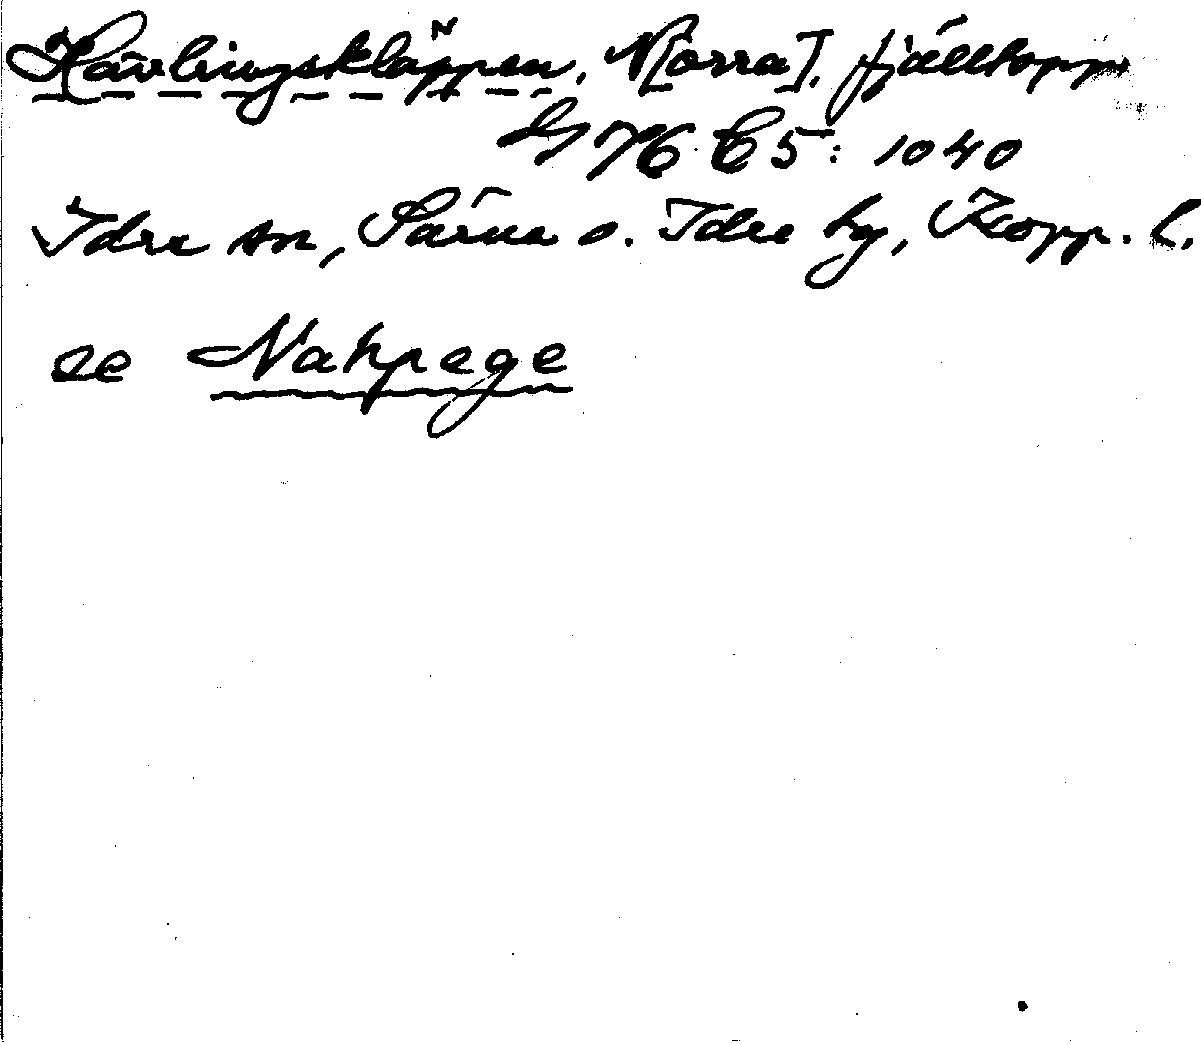 Hävlingskläppen, N[orra], fjälltopp
G 76 C5: 1040
Idre sn, Särna o. Idre tg, Kopp. l.
se Nahpege